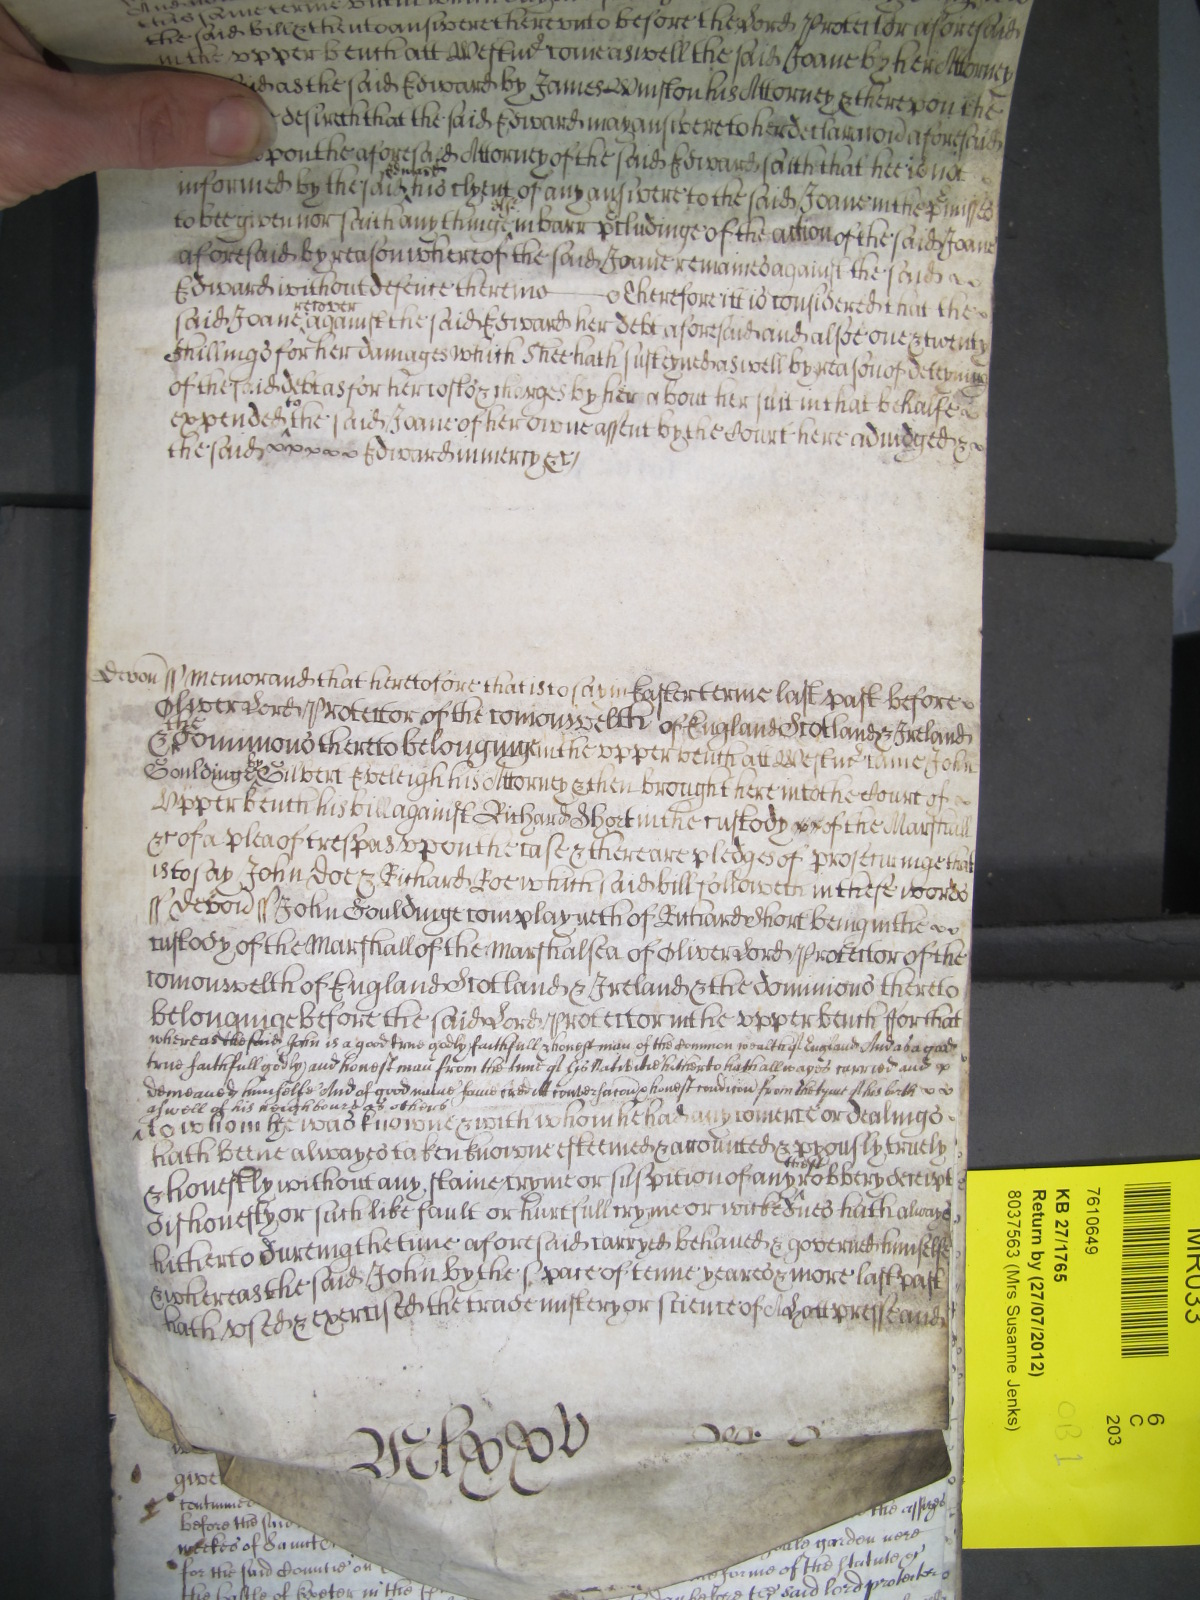 the said bill & then to answere therevnto before the Lord Protector aforesaid
in the vpper bench att Westm̃ come aswell the said Joane by her Attorney
as the said Edward by James Winston his Attorney & therevpon the
desireth that the said Edward may answere to her declaracoñ aforesaid
vpon the aforesaid Attorney of the said Edward saith that hee is not
informed by the said Edward his clyent of any answere to the said Joane in the p̃misses
to bee given nor saith any thinge else in barr p̃cludinge of the action of the said Joane
aforesaid by reason whereof the said Joane remaines against the said
Edward without defence therein Therefore itt is considered that the
said Joane recover against the said Edward her debt aforesaid and alsoe one & twenty
shillings for her damages which Shee hath susteyned aswell by reason of deteyning
of the said debt as for her costs & charges by her about her suit in that behalfe
expended to the said Joane of her owne assent by the Court here adiudged &
the said Edward in mercy &c
Devon ss Memorand that heretofore that is to say in Easter terme last past before
Oliver Lord Protector of the comonwelth of England Scotland & Ireland
& the Dominions thereto belonginge in the vpper bench att Westm̃ came John
Gouldinge by Gilbert Eveleigh his Attorney & then brought here into the Court of
Vpper bench his bill against Richard Short in the custody of the Marshall
&c of a plea of trespas vpon the case & there are pledges of prosecuringe that
is to say John Doe & Richard Roe which said bill followeth in these words
ss Devon ss John Gouldinge complayneth of Richard Short being in the
custody of the Marshall of the Marshalsea of Oliver Lord Protector of the
comonwelth of England Scotland & Ireland & the dominions thereto
belonginge before the said Lord Protector in the vpper bench ffor that
whereas the said John is a good true godly faithfull & honest man of the Common wealth of England And as a good
true faithfull godly and honest man from the time of his Nativitie hitherto hath allwayes carried and
demeaned himselfe And of good name fame credit conversacon & honest condicon from the tyme of his birth
aswell of his neighbours as others
to whom he was knowne & with whom he had any comerce or dealings
hath beene alwayes taken knowne esteemed & accounted & piously truely
& honestly without any staine cryme or suspition of any theft robbery deceipt
dishonesty or such like fault or hurtfull cryme or wickednes hath alwayes
hitherto dureing the time aforesaid carryed behaved & governed himselfe
& whereas the said John by the space of tenne yeares & more last past
hath vsed & exercised the trade mistery or science of a Hottpresser and
Mlxxv
give
continued
before the said
the assizes
weekes of Saint
garden were
for the said Countie on
forme of the statute of
the Castle of Exeter in the
before the said lord protector
MR033
6
C
203
7610649
KB 27/1765
Return by (27/07/2012)
8037563 (Mrs Susanne Jenks)
OB 1